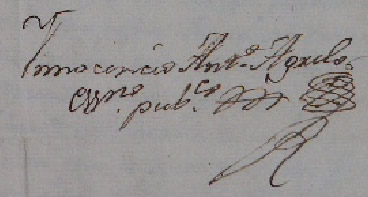 Innocencio Ant.º Aguilo
Essno. pub.co